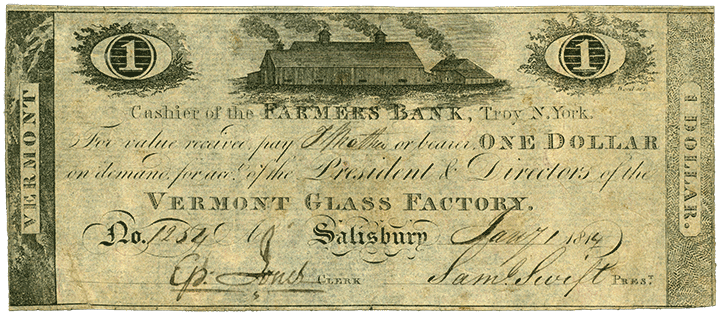 1
1
Cashier of the FARMERS BANK, Troy N. York.
For value receive pay or bearer ONE DOLLAR
on demand, for acc.t of the President & Directors of the
VERMONT GLASS FACTORY.
No. 1254 Salisbury Jany 1 1814
Ep. Jones CLERK Saml. Swift PREST.
VERMONT
1 DOLLAR.